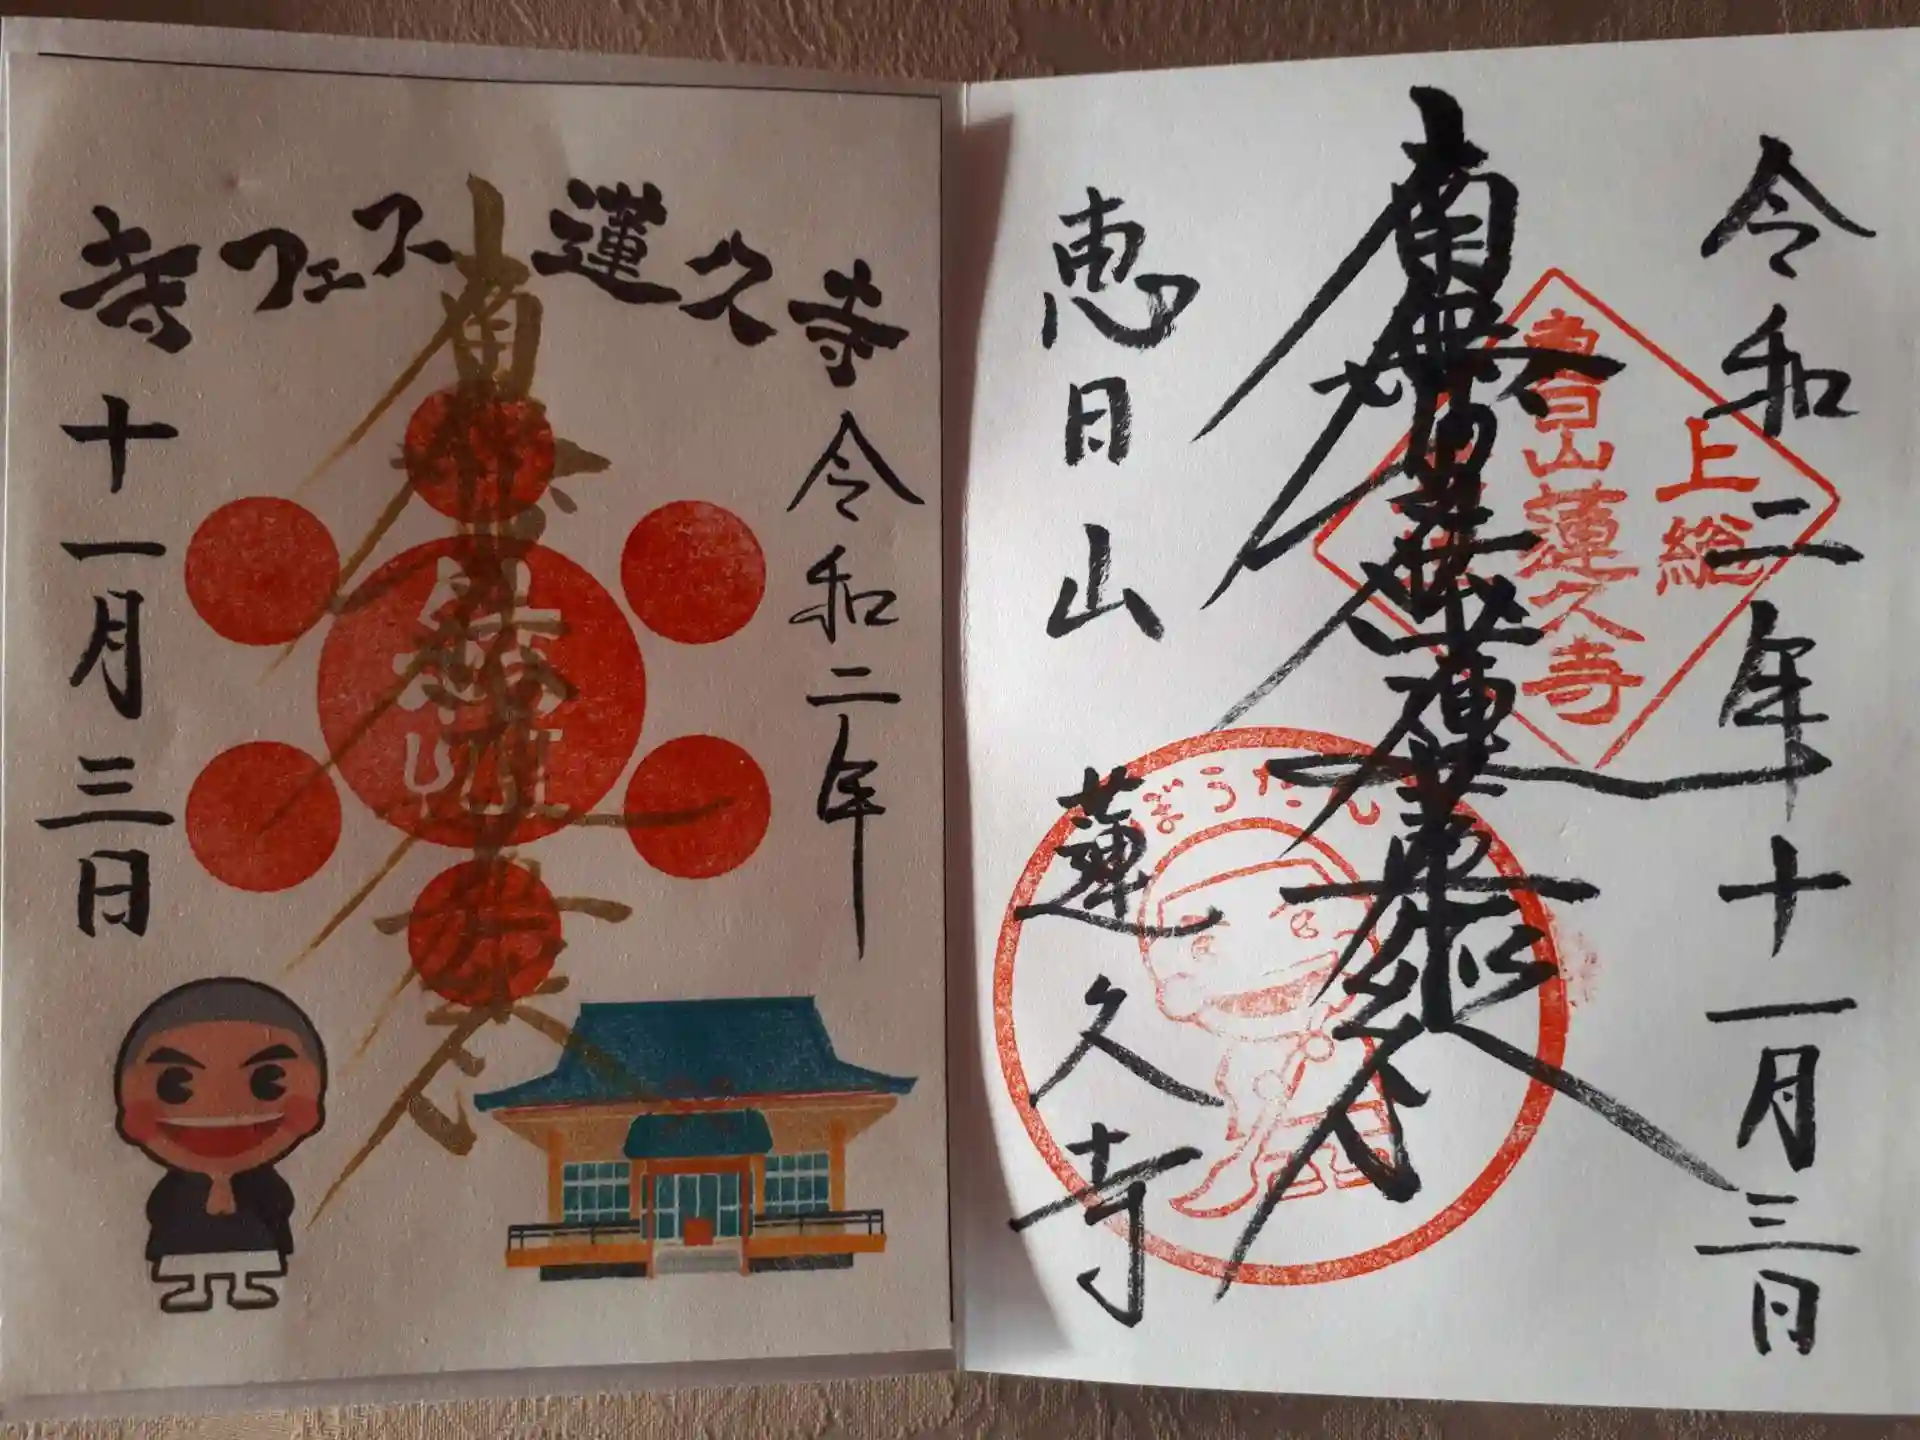 令和二年十一月三日
南無妙法蓮華経
恵日山
蓮久寺
上総
恵日山蓮久寺
ぼうたん
寺フェス蓮久寺
令和二年
南無妙法蓮華経
十一月三日